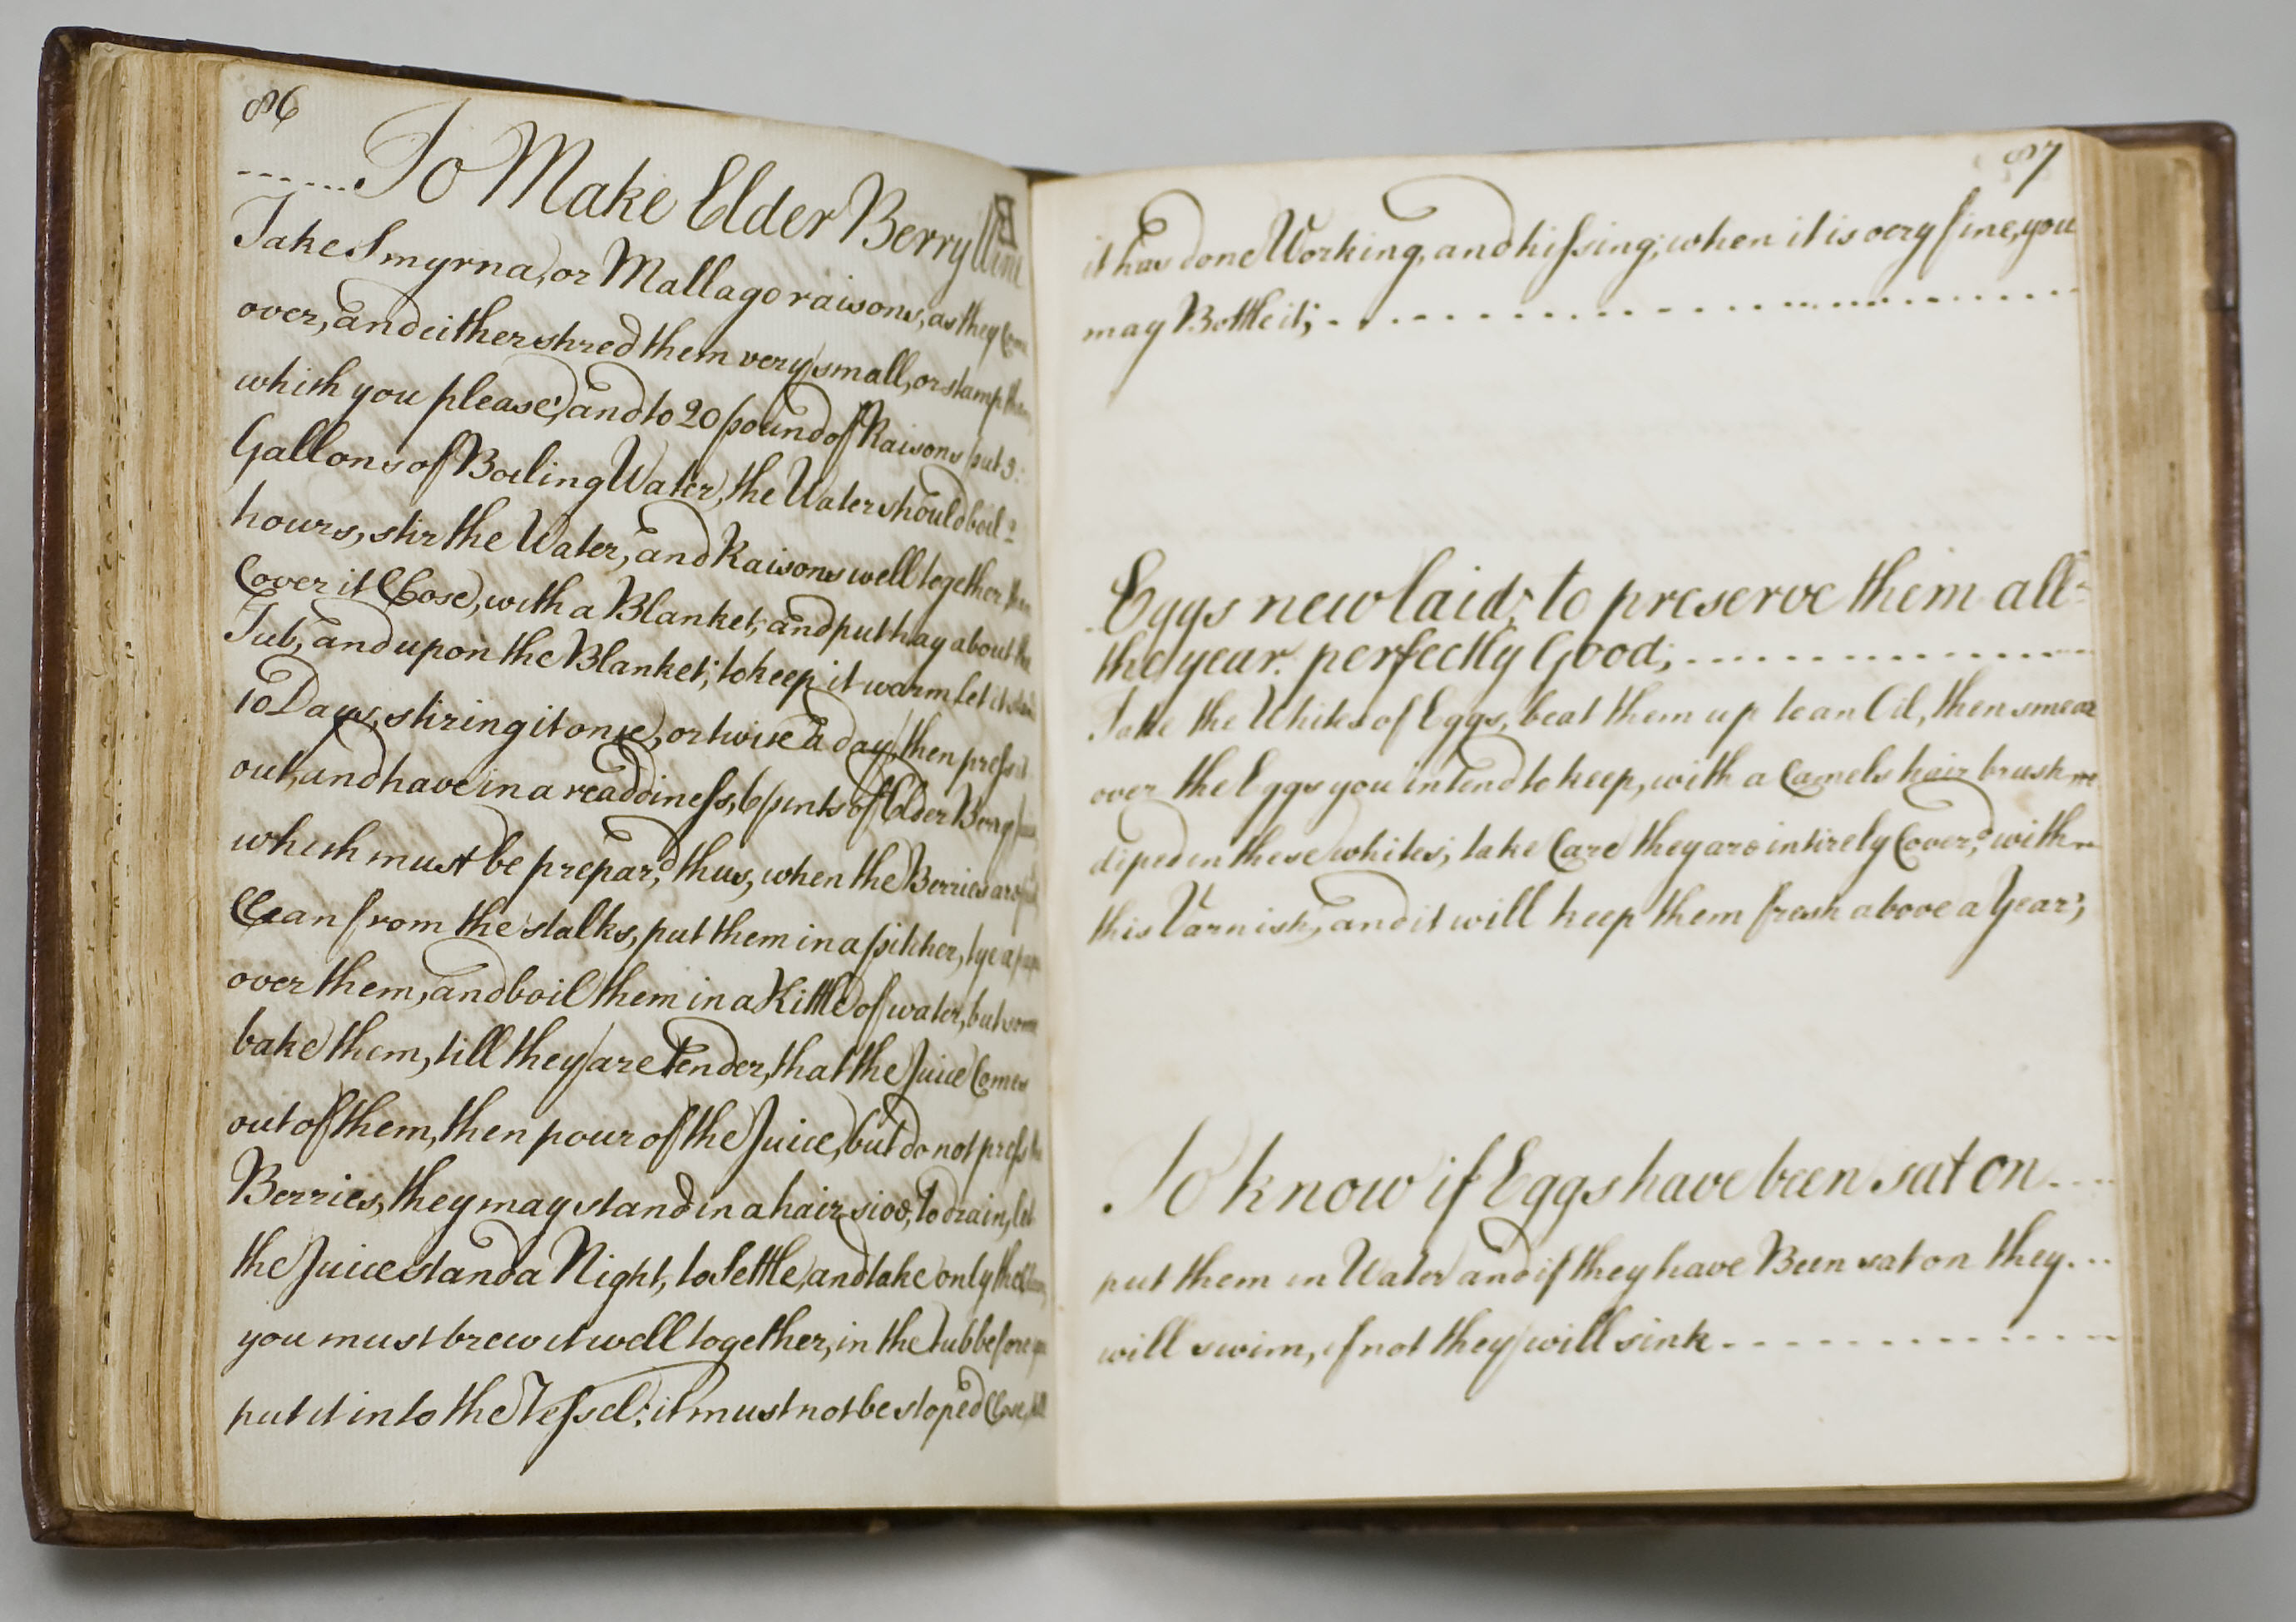 86
To Make Elder Berry Wine
Take Smyrna, or Mallago raisons, as they Come
over, and either shred them very small, or stamp them,
which you please; and to 20 pound of Raisons put 3:
Gallons of Boiling Water, the Water should boil 2
hours, stir the Water, and Raisons well together, then
Cover it Close, with a Blanket; and put hay about the
Tub, and upon the Blanket; to keep it warm let it stand
10 Days, stiring it once, or twice a day, then press it
out, and have in a readdiness, 6 pints of Elder Berry
which must be prepar'd, thus, when the Berries are
Clean from the stalks, put them in a pitcher, tye a paper
over them, and boil them in a Kittle of water, but some
bake them, till they are tender, that the Juice Comes
out of them, then pour of the Juice, but do not press the
Berries, they may stand in a hair sive, to drain, let
the Juice stand a Night, to Settle, and take only the Clear,
you must brew it well together, in the tub before you
put it into the Vessel; it must not be stoped Close, till
87
it has done Working, and hissing; when it is very fine, you
may Bottle it;
Eggs new laid; to preserve them all
the year. perfectly Good;
Take the Whites of Eggs, beat them up to an Oil, then smear
over the Eggs you intend to keep, with a Camels hair brush
diped in these whites; take Care they are intirely Cover'd, with
this Varnish, and it will keep them fresh above a Year;
To know if Eggs have been sat on
put them in Water and if they have Been sat on they
will swim, if not they will sink